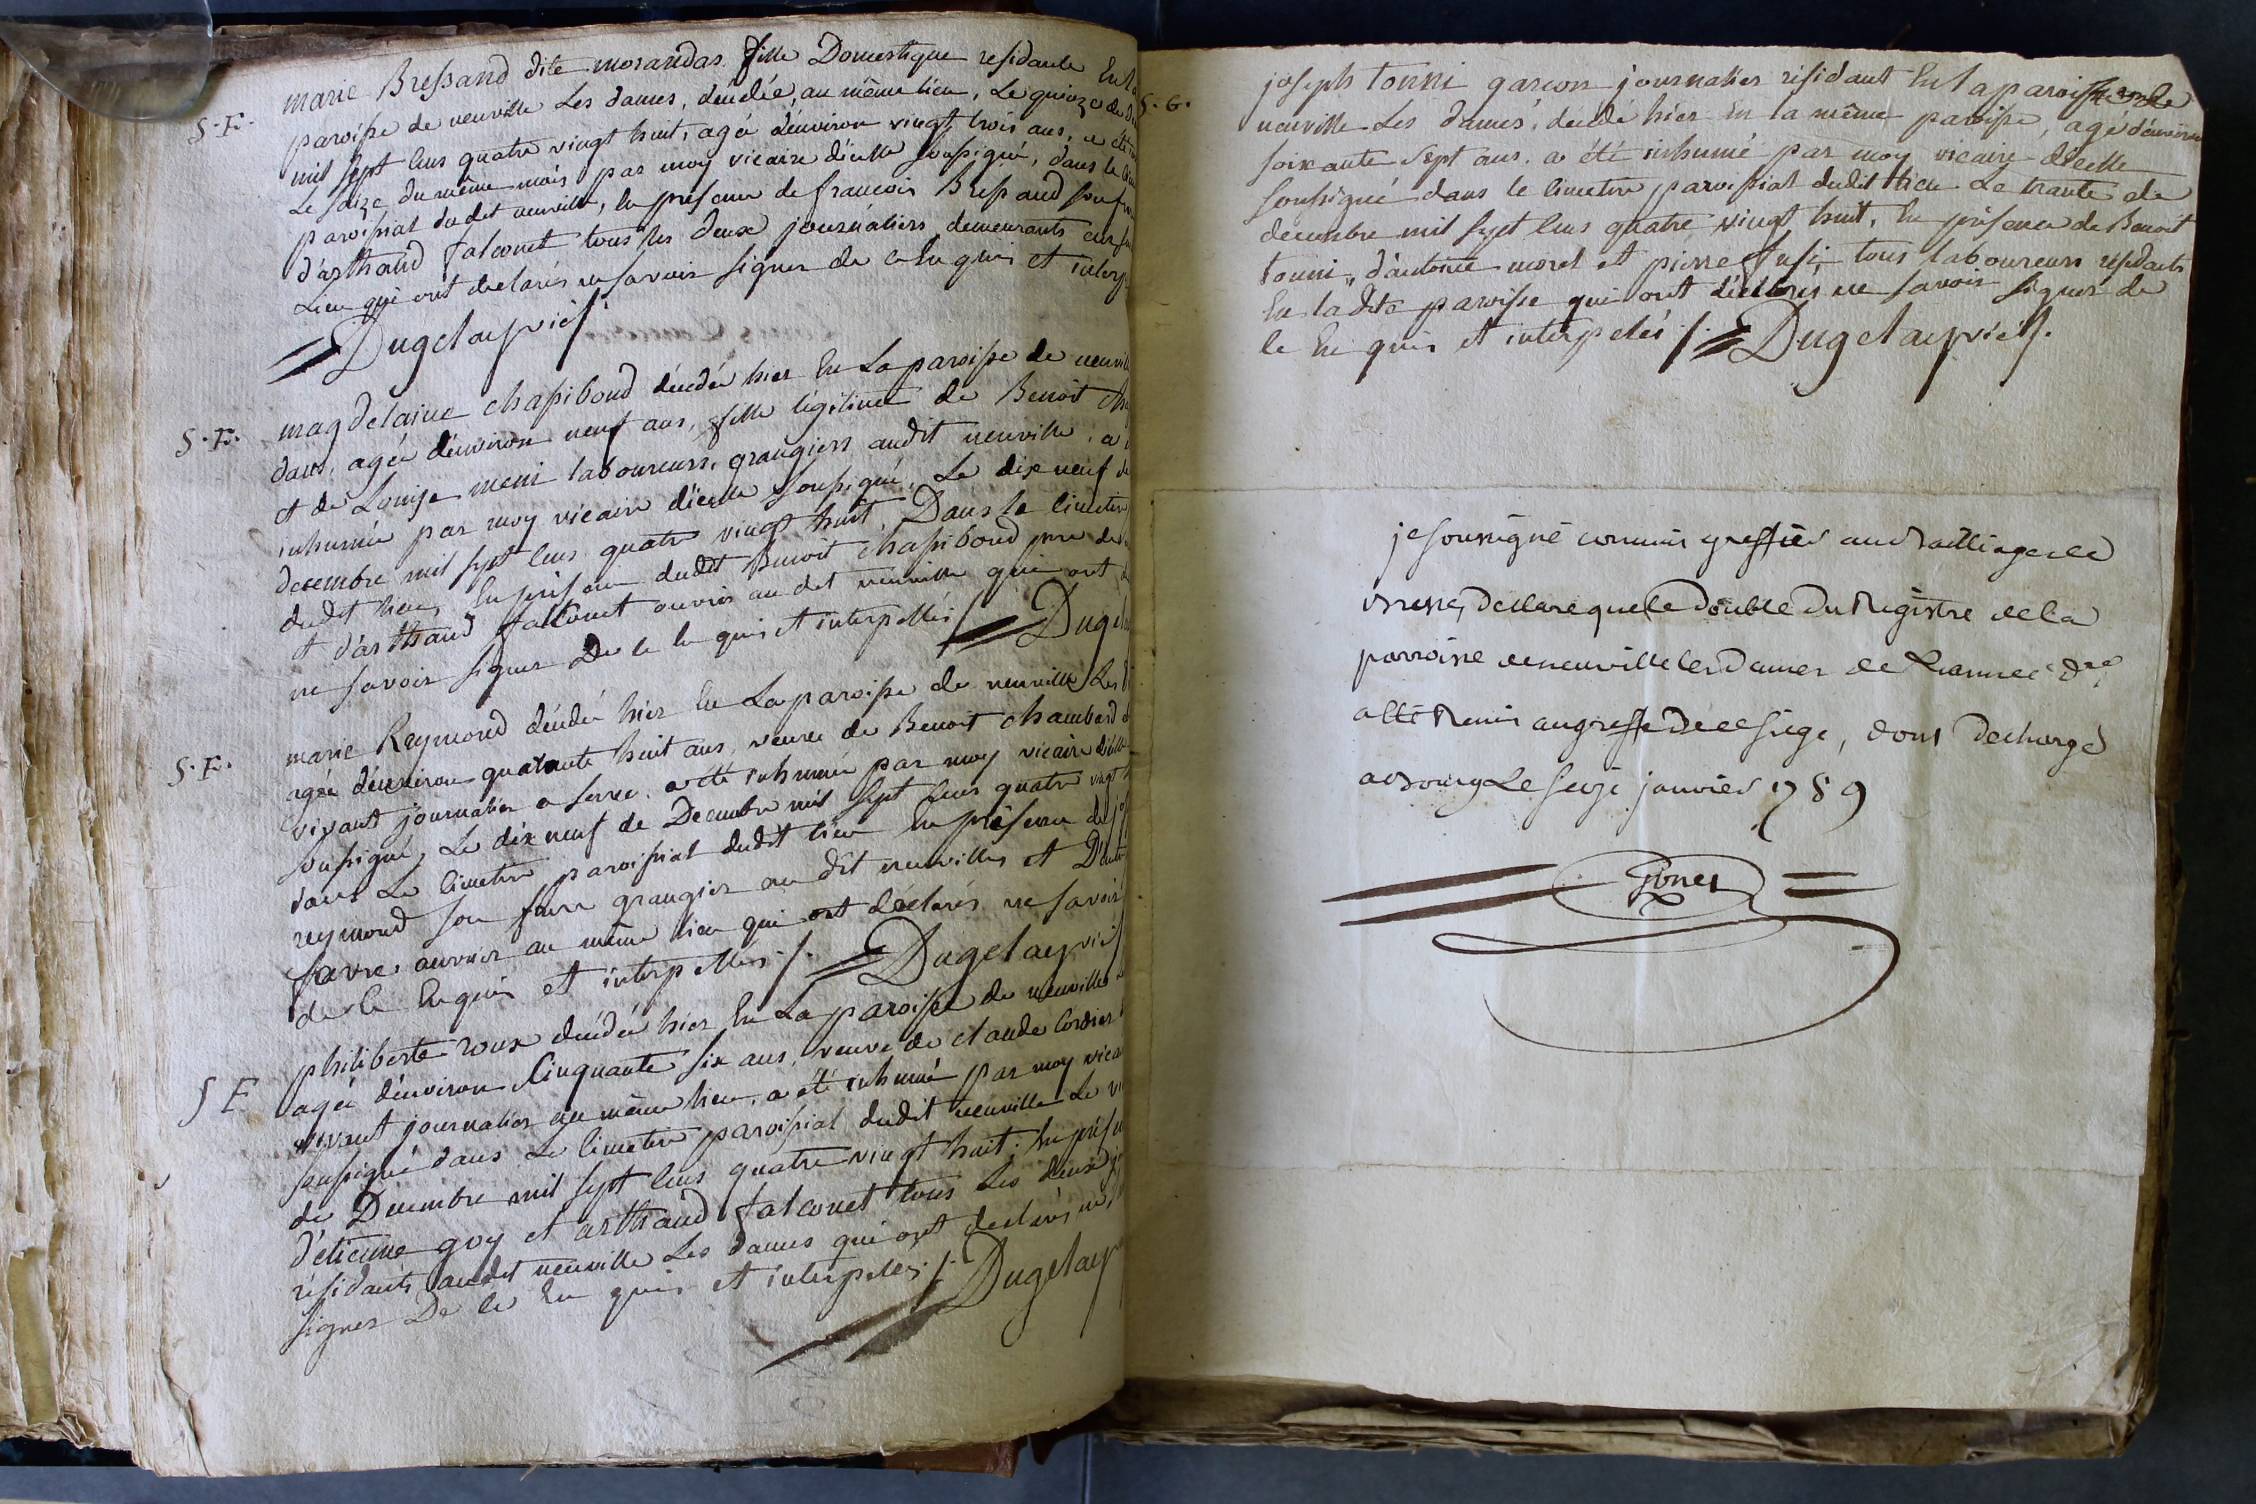 S. F. marie Bressand dite morandas fille Domestique residante En la
paroisse de neuville Les dames, décédée, au même lieu, Le quinze de
mil sept cens quatre vingt huit, agée d'environ vingt trois ans, a été
Le seize du même mois par moy vicaire d'icelle soussigné, dans le
paroissial du dit neuville, En présence de francois Bressand son
d'arthaud falconet tous les deux journaliers demeurants
Lieu qui ont declarés ne savoir signer de ce Enquis et
Dugelay vic.
S. F. magdelaine chassiboud décédée hier En La paroisse de neuville
dames, agée d'environ neuf ans, fille légitime de Benoit
et de Louise meni laboureurs, grangiers audit neuville, a
inhumée par moy vicaire d'icelle soussigné, Le dix neuf de
decembre mil sept cens quatre vingt huit, Dans le cimetiere
dudit lieu, En présence dudit Benoit chassiboud pere de
et d'arthaud falconet ouvrier au dit neuville qui ont
ne savoir signer De ce Enquis et interpellés
S. F. marie Reymond décédée hier En La paroisse de neuville Les
agée d'environ quarante huit ans, veuve de Benoit chambard
vivant journalier a a été inhumée par moy vicaire d'icelle
soussigné, Le dix neuf de Decembre mil sept cens quatre vingt
dans Le cimetiere paroissial dudit lieu En présence de
reymond son frere grangier au dit neuville et
favre, ouvrier au même lieu qui ont déclarés ne savoir
de ce Enquis et interpellés Dugelay vic
S F philiberte roux décédée hier En La paroisse de neuville
agée d'environ Cinquante six ans, veuve de claude Cordier
vivant journalier au même lieu, a été inhumé par moy
soussigné dans Le cimetiere paroissial dudit neuville Le
de Decembre mil sept cens quatre vingt huit, En
d'etienne goy et arthaud falconet tous Les deux
résidants audit neuville Les dames qui ont declarés ne
signer De ce Enquis et interpelés Dugelay
S. G. joseph tonni garcon journalier résidant En la paroisse de
neuville Les dames, décédé hier En la même paroisse, agé d'environ
soixante sept ans, a été inhumé par moy vicaire d'icelle
soussigné dans le cimetiere paroissial dudit lieu Le trente de
decembre mil sept cens quatre vingt huit, En présence de Benoit
tonni, d'antoine morel et pierre tous laboureurs résidants
En ladite paroisse qui ont déclarés ne savoir signer de
ce Enquis et interpelés Dugelay vic.
je soussigné commis greffier au Bailliage de
Bresse, declare que le double Du Registre de la
parroisse de neuville les Dames de L'annee dre
a été Remis au greffe De ce siege, dont decharge
a Bourg Le seize janvier 1789